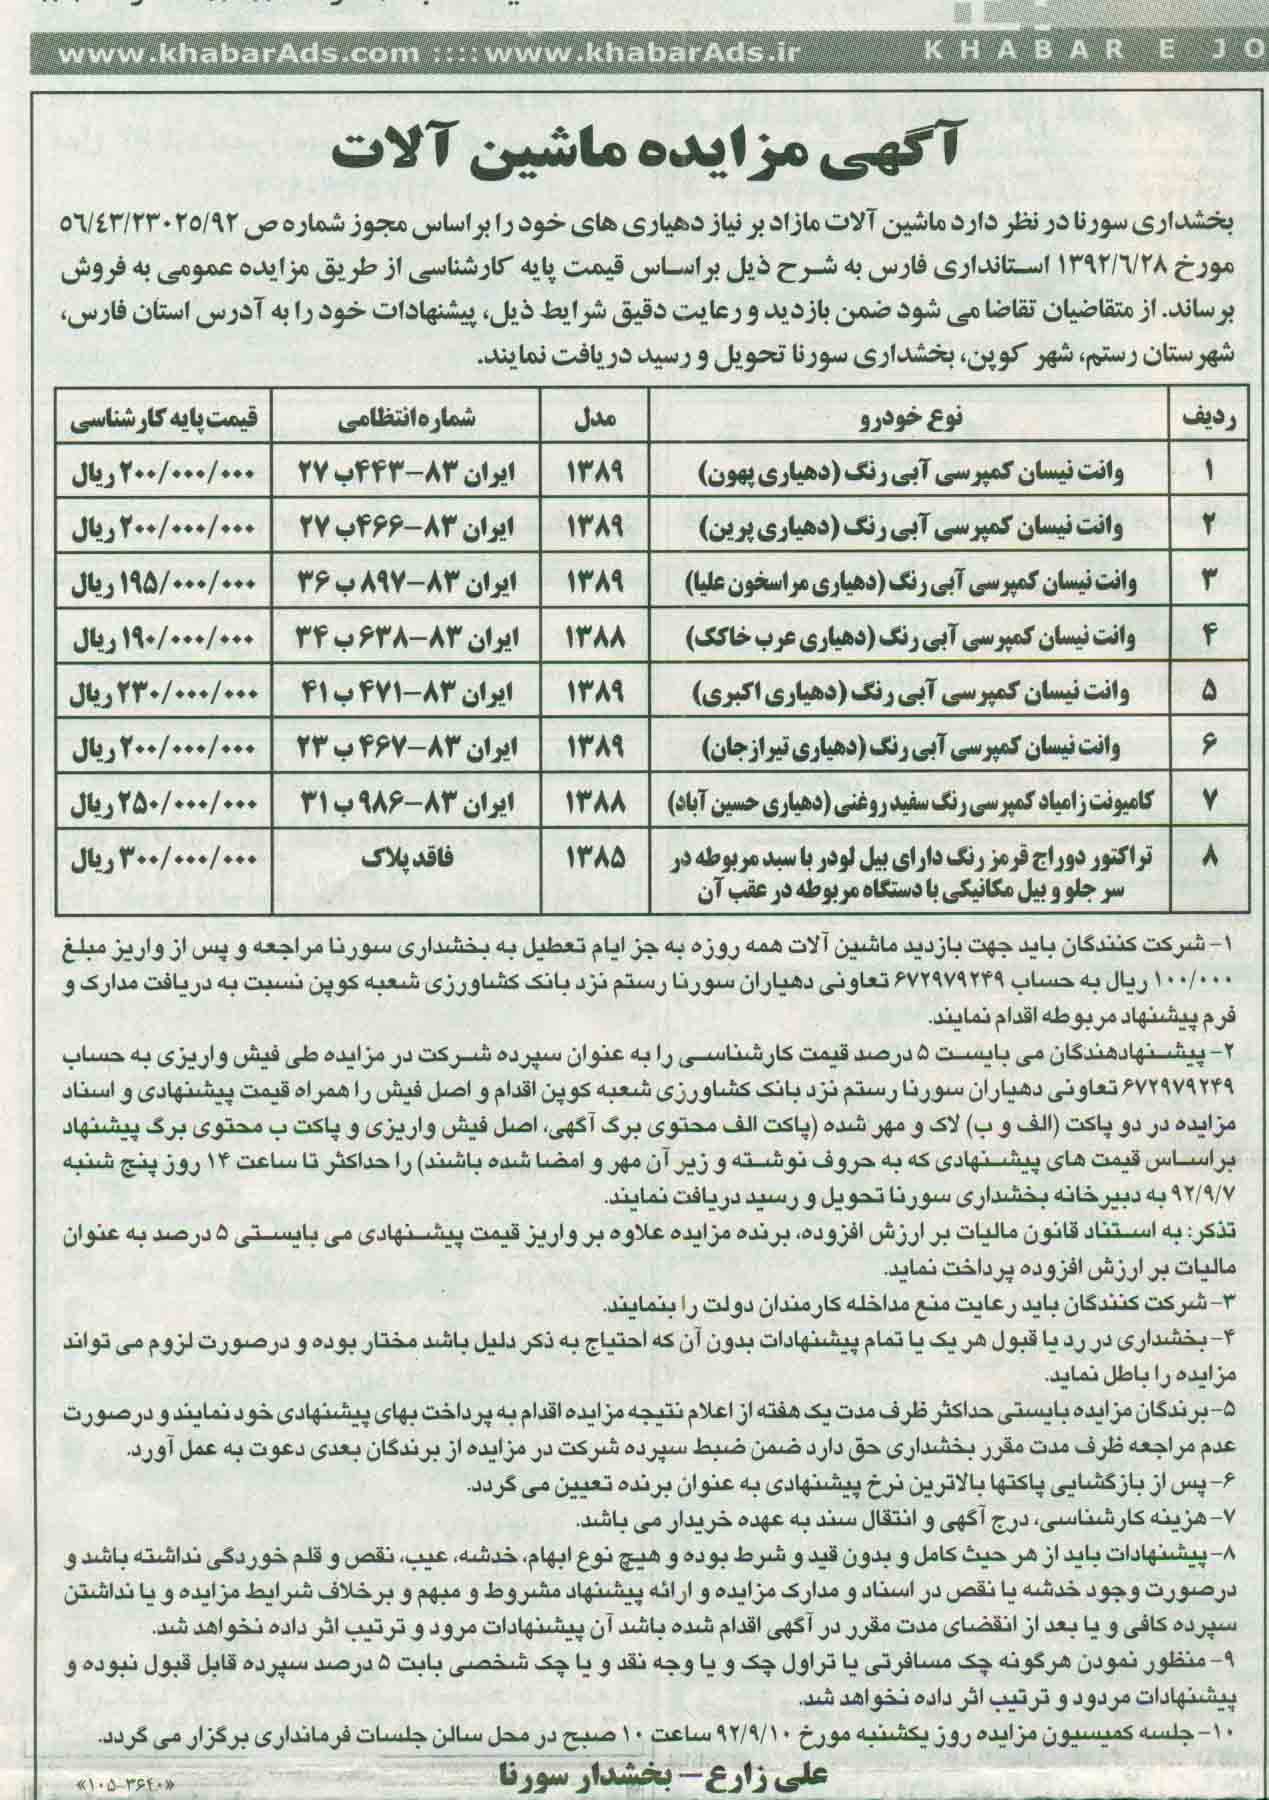 www.khabarAds.com :::: www.khabarAds.ir KHABAR E JO
آگهی مزایده ماشین آلات
بخشداری سورنا در نظر دارد ماشین آلات مازاد بر نیاز دهیاری های خود را براساس مجوز شماره ص ۵۶/۴۳/۲۳۰۲۵/۹۲
مورخ ۱۳۹۲/۶/۲۸ استانداری فارس به شرح ذیل براساس قیمت پایه کارشناسی از طریق مزایده عمومی به فروش
برساند. از متقاضیان تقاضا می شود ضمن بازدید و رعایت دقیق شرایط ذیل، پیشنهادات خود را به آدرس استان فارس،
شهرستان رستم، شهر کوپن، بخشداری سورنا تحویل و رسید دریافت نمایند.
ردیف نوع خودرو مدل شماره انتظامی قیمت پایه کارشناسی
۱ وانت نیسان کمپرسی آبی رنگ (دهیاری پهون) ۱۳۸۹ ایران ۸۳-۴۴۳ب ۲۷ ۲۰۰/۰۰۰/۰۰۰ ریال
۲ وانت نیسان کمپرسی آبی رنگ (دهیاری پرین) ۱۳۸۹ ایران ۸۳-۴۶۶ب ۲۷ ۲۰۰/۰۰۰/۰۰۰ ریال
۳ وانت نیسان کمپرسی آبی رنگ (دهیاری مراسخون علیا) ۱۳۸۹ ایران ۸۳-۸۹۷ ب ۳۶ ۱۹۵/۰۰۰/۰۰۰ ریال
۴ وانت نیسان کمپرسی آبی رنگ (دهیاری عرب خاکک) ۱۳۸۸ ایران ۸۳-۶۳۸ ب ۳۴ ۱۹۰/۰۰۰/۰۰۰ ریال
۵ وانت نیسان کمپرسی آبی رنگ (دهیاری اکبری) ۱۳۸۹ ایران ۸۳-۴۷۱ ب ۴۱ ۲۳۰/۰۰۰/۰۰۰ ریال
۶ وانت نیسان کمپرسی آبی رنگ (دهیاری تیرازجان) ۱۳۸۹ ایران ۸۳-۴۶۷ ب ۲۳ ۲۰۰/۰۰۰/۰۰۰ ریال
۷ کامیونت زامیاد کمپرسی رنگ سفید روغنی (دهیاری حسین آباد) ۱۳۸۸ ایران ۸۳-۹۸۶ ب ۳۱ ۲۵۰/۰۰۰/۰۰۰ ریال
۸ تراکتور دوراج قرمز رنگ دارای بیل لودر با سبد مربوطه در ۱۳۸۵ فاقد پلاک ۳۰۰/۰۰۰/۰۰۰ ریال
سر جلو و بیل مکانیکی با دستگاه مربوطه در عقب آن
۱- شرکت کنندگان باید جهت بازدید ماشین آلات همه روزه به جز ایام تعطیل به بخشداری سورنا مراجعه و پس از واریز مبلغ
۱۰۰/۰۰۰ ریال به حساب ۶۷۲۹۷۹۲۴۹ تعاونی دهیاران سورنا رستم نزد بانک کشاورزی شعبه کوپن نسبت به دریافت مدارک و
فرم پیشنهاد مربوطه اقدام نمایند.
۲- پیشنهاددهندگان می بایست ۵ درصد قیمت کارشناسی را به عنوان سپرده شرکت در مزایده طی فیش واریزی به حساب
۶۷۲۹۷۹۲۴۹ تعاونی دهیاران سورنا رستم نزد بانک کشاورزی شعبه کوپن اقدام و اصل فیش را همراه قیمت پیشنهادی و اسناد
مزایده در دو پاکت (الف و ب) لاک و مهر شده (پاکت الف محتوی برگ آگهی، اصل فیش واریزی و پاکت ب محتوی برگ پیشنهاد
براساس قیمت های پیشنهادی که به حروف نوشته و زیر آن مهر و امضا شده باشند) را حداکثر تا ساعت ۱۴ روز پنج شنبه
۹۲/۹/۷ به دبیرخانه بخشداری سورنا تحویل و رسید دریافت نمایند.
تذکر: به استناد قانون مالیات بر ارزش افزوده، برنده مزایده علاوه بر واریز قیمت پیشنهادی می بایستی ۵ درصد به عنوان
مالیات بر ارزش افزوده پرداخت نماید.
۳- شرکت کنندگان باید رعایت منع مداخله کارمندان دولت را بنمایند.
۴- بخشداری در رد یا قبول هر یک یا تمام پیشنهادات بدون آن که احتیاج به ذکر دلیل باشد مختار بوده و درصورت لزوم می تواند
مزایده را باطل نماید.
۵- برندگان مزایده بایستی حداکثر ظرف مدت یک هفته از اعلام نتیجه مزایده اقدام به پرداخت بهای پیشنهادی خود نمایند و درصورت
عدم مراجعه ظرف مدت مقرر بخشداری حق دارد ضمن ضبط سپرده شرکت در مزایده از برندگان بعدی دعوت به عمل آورد.
۶- پس از بازگشایی پاکتها بالاترین نرخ پیشنهادی به عنوان برنده تعیین می گردد.
۷- هزینه کارشناسی، درج آگهی و انتقال سند به عهده خریدار می باشد.
۸- پیشنهادات باید از هر حیث کامل و بدون قید و شرط بوده و هیچ نوع ابهام، خدشه، عیب، نقص و قلم خوردگی نداشته باشد و
درصورت وجود خدشه یا نقص در اسناد و مدارک مزایده و ارائه پیشنهاد مشروط و مبهم و برخلاف شرایط مزایده و یا نداشتن
سپرده کافی و یا بعد از انقضای مدت مقرر در آگهی اقدام شده باشد آن پیشنهادات مرود و ترتیب اثر داده نخواهد شد.
۹- منظور نمودن هرگونه چک مسافرتی یا تراول چک و یا وجه نقد و یا چک شخصی بابت ۵ درصد سپرده قابل قبول نبوده و
پیشنهادات مردود و ترتیب اثر داده نخواهد شد.
۱۰- جلسه کمیسیون مزایده روز یکشنبه مورخ ۹۲/۹/۱۰ ساعت ۱۰ صبح در محل سالن جلسات فرمانداری برگزار می گردد.
علی زارع - بخشدار سورنا
«۱۰۵-۳۶۴۰»